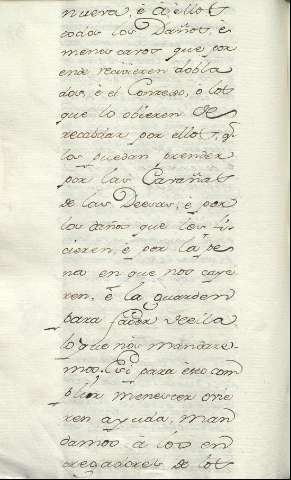 nueva, è à ellos
todos los Daños, è
menoscavos que por
ende recivieren dobla
dos, è el Conzejo, ò los
que lo obieren de
recabdar por ellos, q.
los puedan prender
por las Cavañas
de las Deesas, è por
los daños que les fi
cieren, è por la pe
na en que nos caye
ren, è la guarden
para facer de ella
lo que nos mandare
mos. Esi para esto com
plir menester ovie
ren ayuda, man
damos à los en
tregadores de los